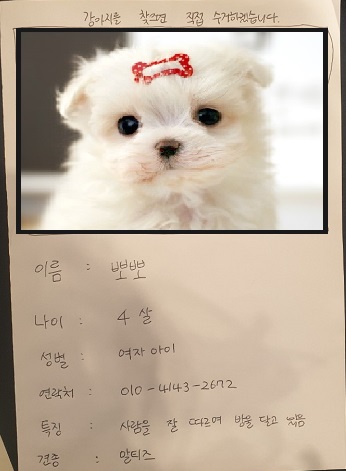 강아지를 찾으면 직접 수거하겠습니다.
이름 : 뽀뽀
나이 : 4 살
성별 : 여자 아이
연락처 : 010-4143-2672
특징 : 사람을 잘 따르며 방울 달고 있음
견종 : 말티즈